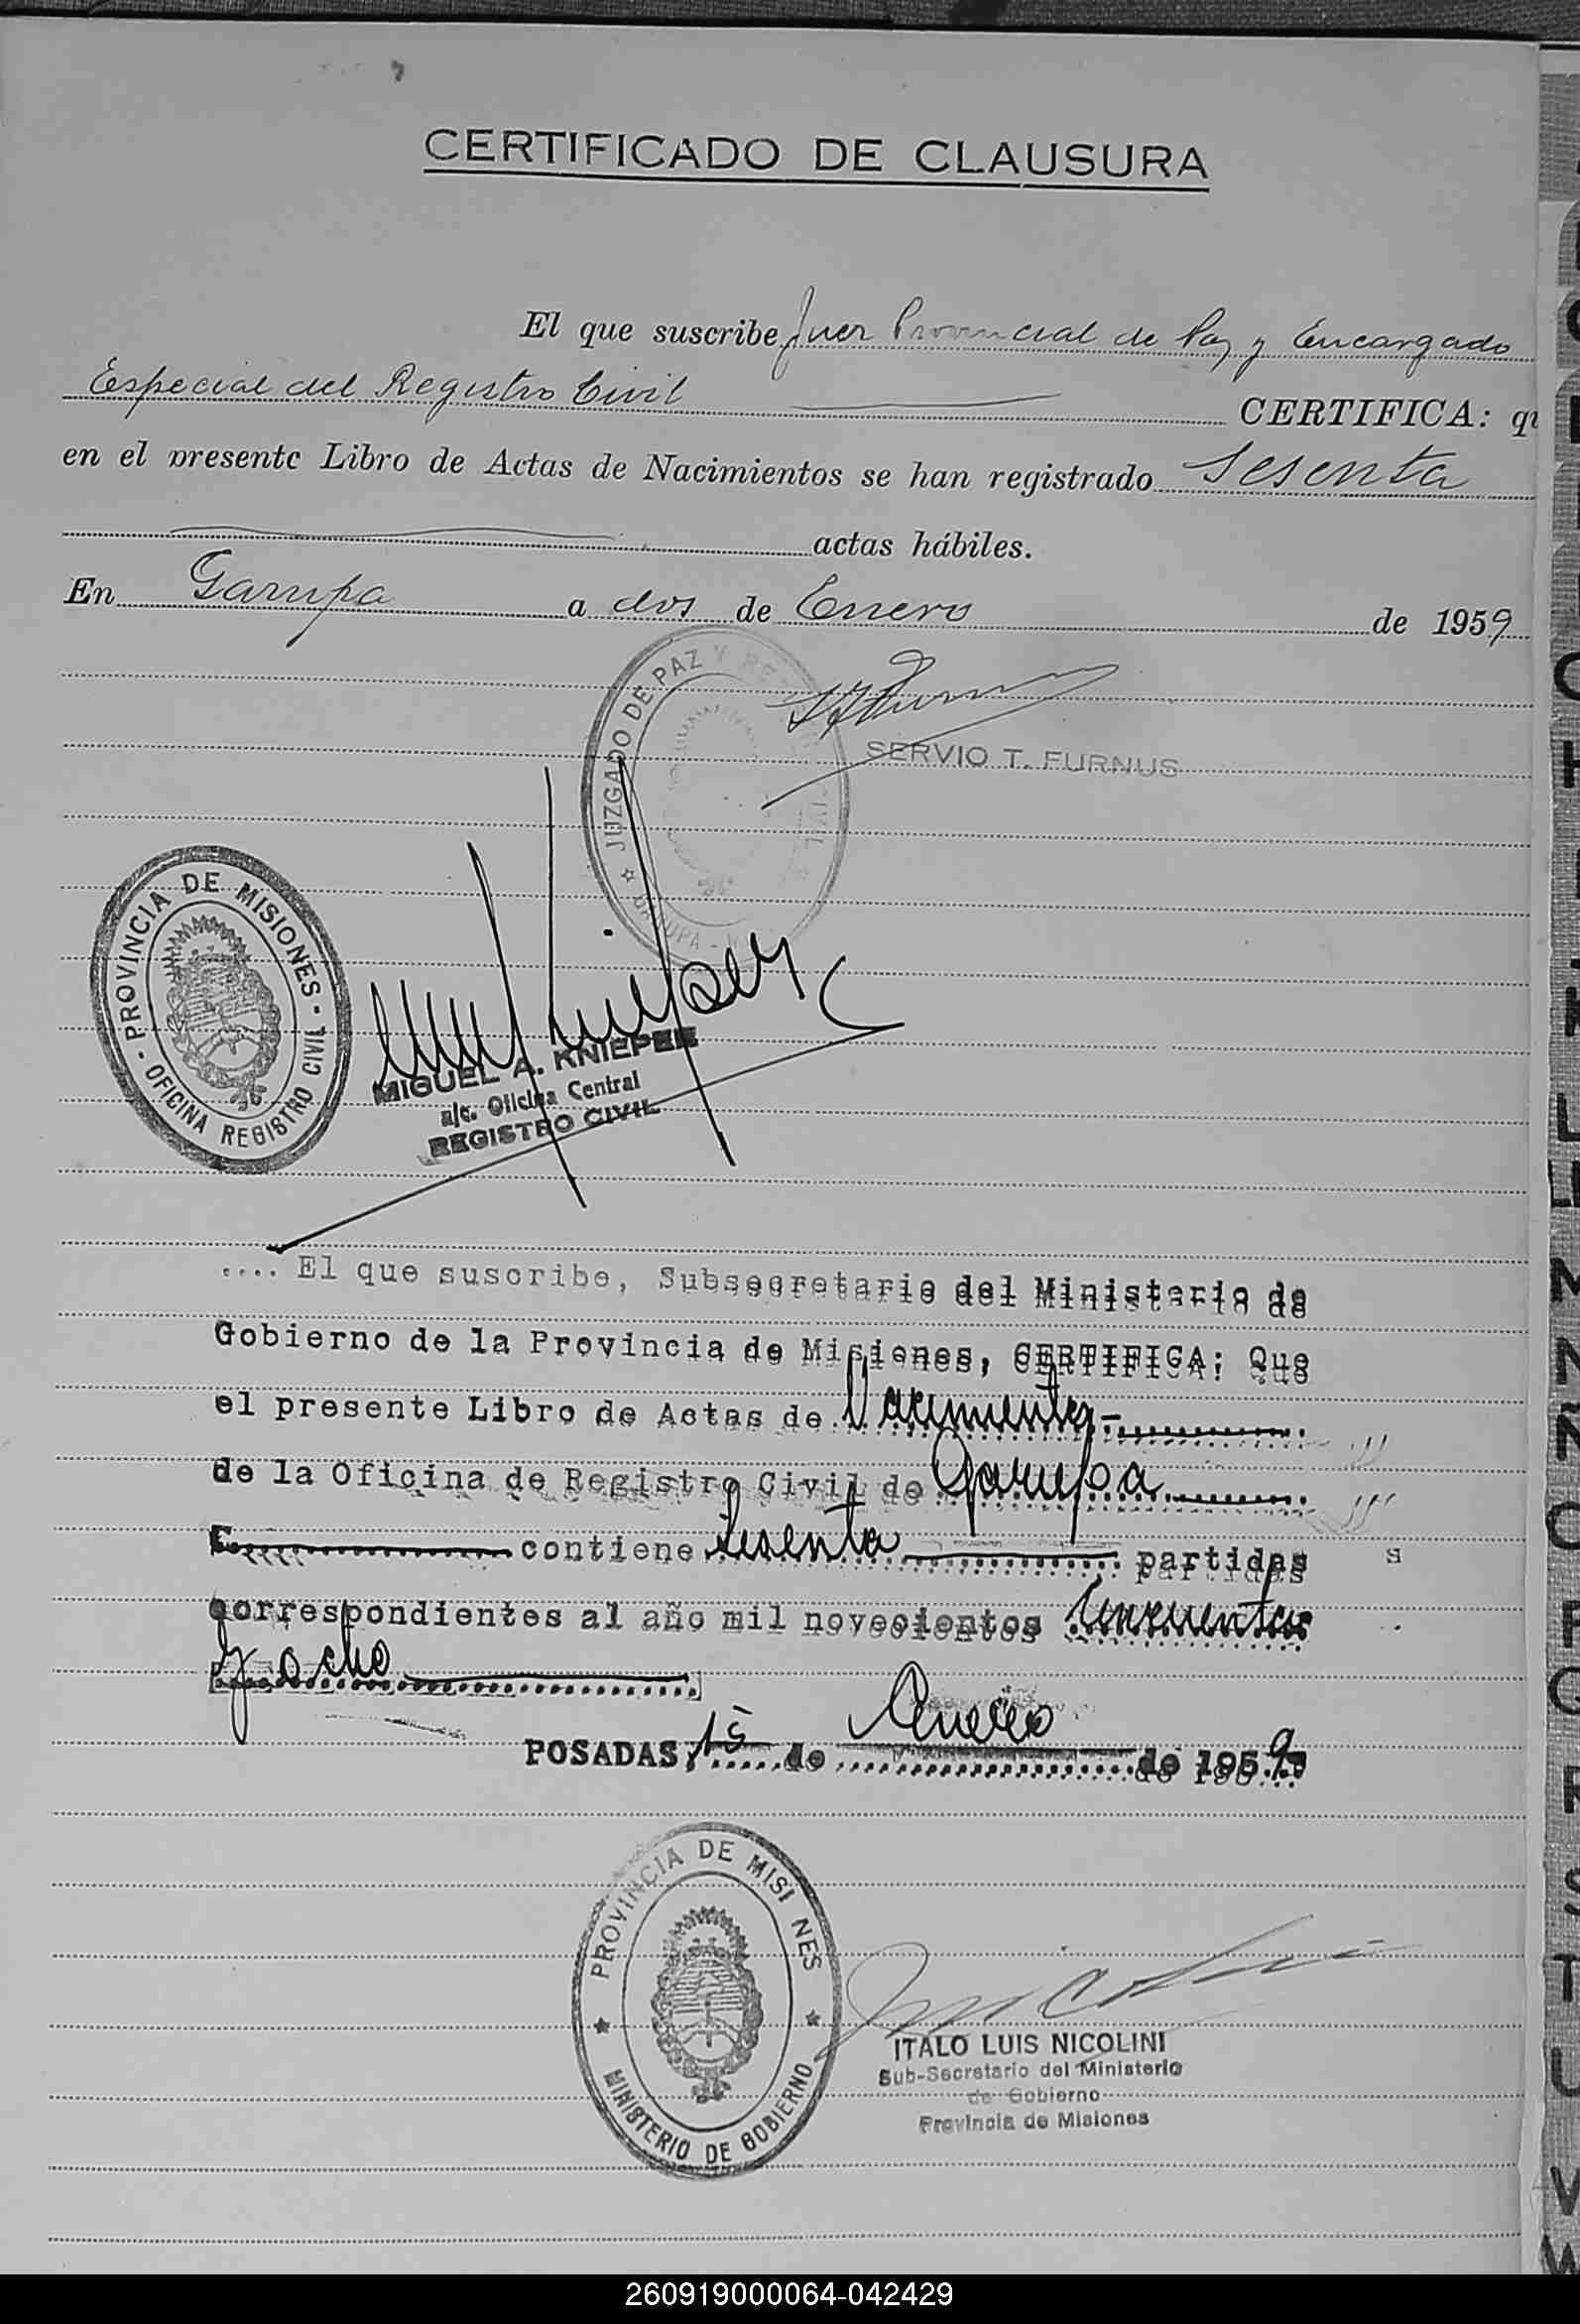 CERTIFICADO DE CLAUSURA
El que suscribe Juez Provincial de Paz y Encargado
Especial del Registro Civil CERTIFICA: qu
en el presente Libro de Actas de Nacimientos se han registrado Sesenta
actas hábiles.
En Garupa a dos de Enero de 1959
JUZGADO DE PAZ Y
SERVIO T. FURNUS
PROVINCIA DE MISIONES
OFICINA REGISTRO CIVIL
MIGUEL A. KNIEPER
a/c. Oficina Central
REGISTRO CIVIL
.... El que suscribe, Subsecretario del Ministerio de
Gobierno de la Provincia de Misiones, CERTIFICA: Que
el presente Libro de Actas de Nacimientos
de la Oficina de Registro Civil de Garupa
contiene sesenta partidas
correspondientes al año mil novecientos cincuenta
y ocho
POSADAS, 15 de Enero de 1959
PROVINCIA DE MISI NES
MINISTERIO DE GOBIERNO
ITALO LUIS NICOLINI
Sub-Secretario del Ministerio
de Gobierno
Provincia de Misiones
260919000064-042429